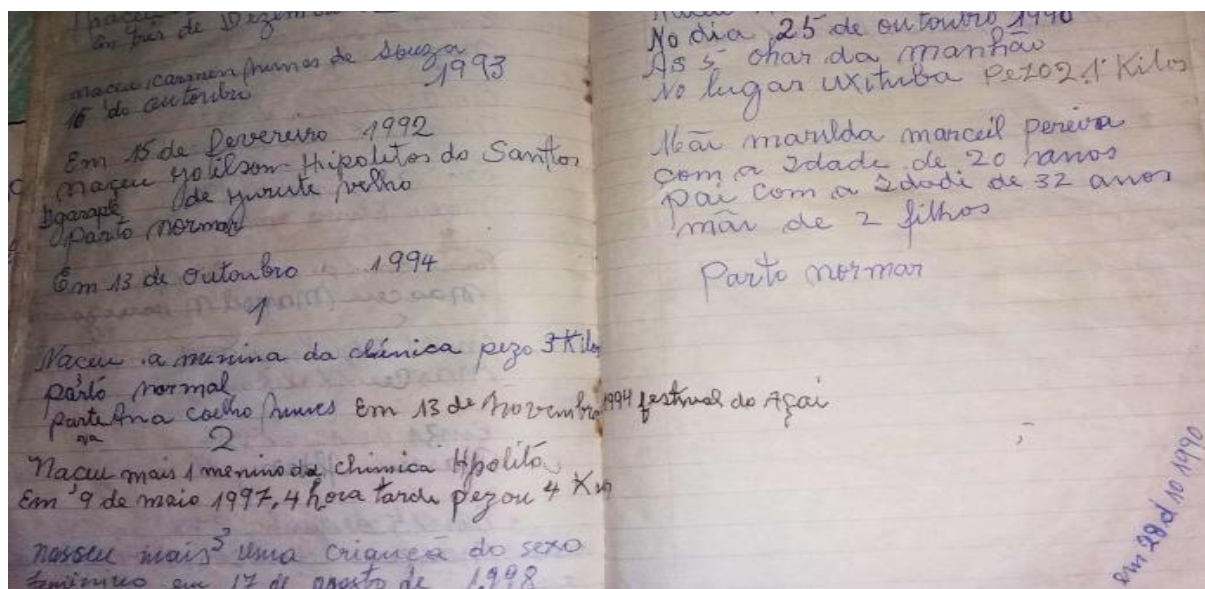 em três de Dezem
naceu carmen nunes de souza
16 do outoubru 1993
Em 15 de Fevereiro 1992
naçeu Joilson Hipolitos do Santos
Igarapé de Jurute velho
parto normal
Em 13 de outoubro 1994
1
Naceu a menina da chínica pezo 3 Kilos
parto normal
parteira Ana coelho nunes Em 13 de novembro 1994 festival do Açai
2
Naceu mais 1 menino da chimica Hpolito
Em 9 de maio 1997, 4 hora tarde pezou 4 K
nasseu mais 3 uma crianeça do sexo
feminino em 17 de agosto de 1998
No dia 25 de outoubro 1990
As 5 ohar da manhão
No lugar uxituba Pezo 2,1 Kilos
Mãi marilda marceil pereira
com a Idade de 20 ranos
pai com a Idadi de 32 anos
mãi de 2 filhos
Parto normar
em 28 d 10 1990